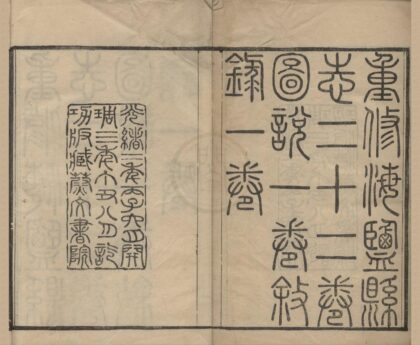 重修海鹽縣
志二十二卷
圖說一卷敘
錄一卷
光緒二年丙子九月開
琱三年丁丑八月訖
功版藏蔚文書院